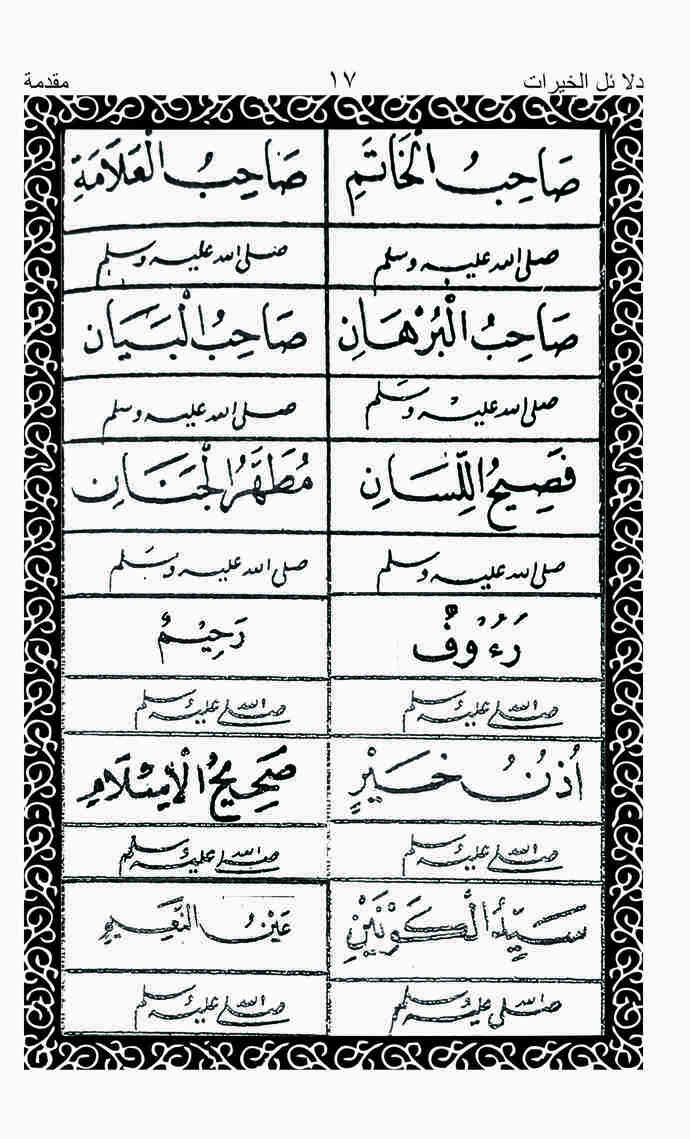 دلائل الخيرات ١٧ مقدمة
صَاحِبُ الْخَاتَمِ صَاحِبُ الْعَلَامَةِ
صلى الله عليه وسلم صلى الله عليه وسلم
صَاحِبُ الْبُرْهَانِ صَاحِبُ الْبَيَانِ
صلى الله عليه وسلم صلى الله عليه وسلم
فَصِيحُ اللِّسَانِ مُطَهَّرُ الْجَنَانِ
صلى الله عليه وسلم صلى الله عليه وسلم
رَءُوفٌ رَحِيْمٌ
صلى الله عليه وسلم صلى الله عليه وسلم
أُذُنُ خَيْرٍ صَحِيحُ الْإِسْلَامِ
صلى الله عليه وسلم صلى الله عليه وسلم
سَيِّدُ الْكَوْنَيْنِ عَيْنُ النَّعِيمِ
صلى الله عليه وسلم صلى الله عليه وسلم